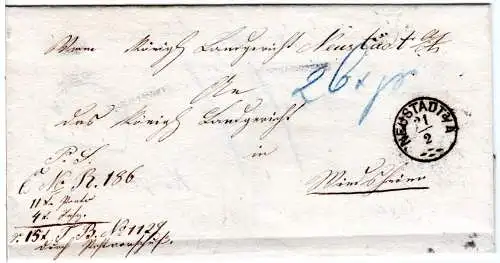 Vom Königl. Landgericht Neustadt a/A
26 xr
An
das Königl. Landgericht
in
Windsheim
NEUSTADT A/A
21
2
P. S.
E. N. R. 186
11 x. Porto
4 x.
15 x. P. B. No 1129
durch Postvorschuß.